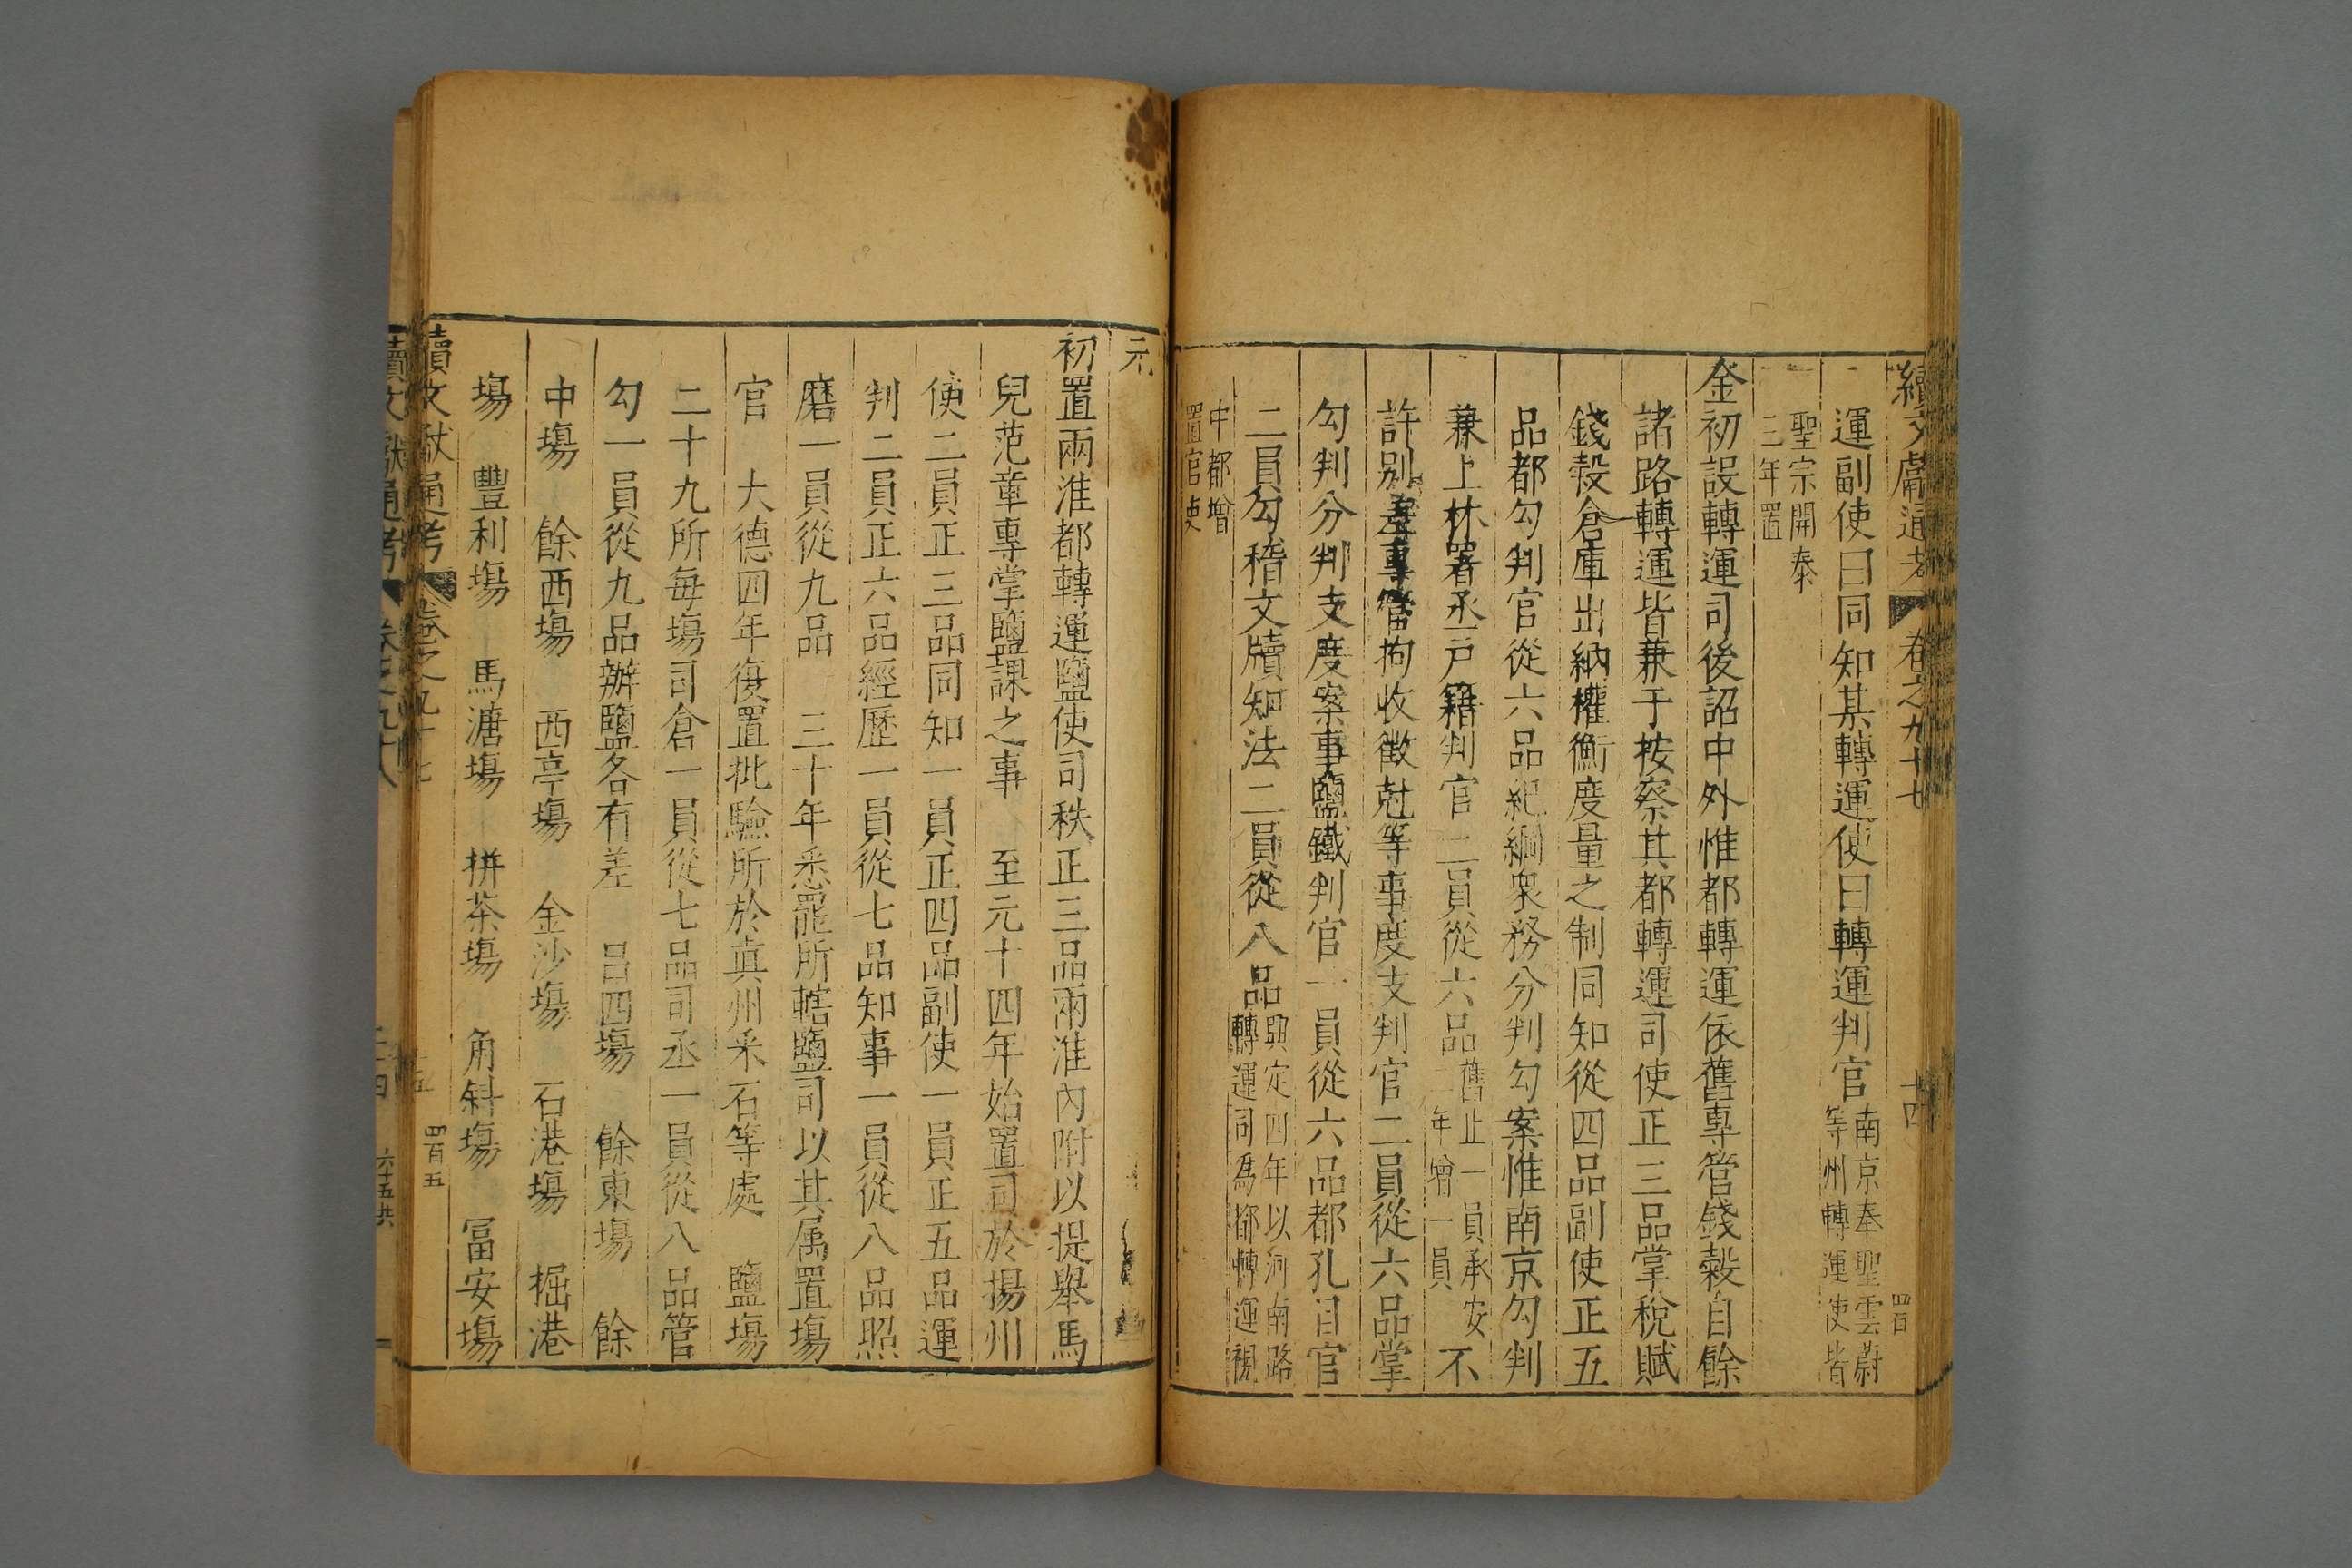 續文獻通考 卷之九十七 十四 四百
運副使曰同知某轉運使曰轉運判官南京奉聖雲蔚
等州轉運使皆
聖宗開泰
三年置
金初設轉運司後詔中外惟都轉運依舊專管錢穀自餘
諸路轉運皆兼于按察其都轉運司使正三品掌稅賦
錢穀倉庫出納權衡度量之制同知從四品副使正五
品都勾判官從六品紀綱衆務分判勾案惟南京勾判
兼上林署丞戸籍判官二員從六品舊止一員承安
二年增一員不
許別差專管拘收徵尅等事度支判官二員從六品掌
勾判分判支度案事鹽鐵判官一員從六品都孔目官
二員勾稽文牘知法二員從八品興定四年以河南路
轉運司爲都轉運視
中都增
置官吏
元
初置兩淮都轉運鹽使司秩正三品兩淮內附以提舉馬
兒范章專掌鹽課之事 至元十四年始置司於揚州
使二員正三品同知一員正四品副使一員正五品運
判二員正六品經歷一員從七品知事一員從八品照
磨一員從九品 三十年悉罷所轄鹽司以其属置塲
官 大德四年復置批驗所於眞州采石等處 鹽塲
二十九所每塲司倉一員從七品司丞一員從八品管
勾一員從九品辦鹽各有差 呂四塲 餘東塲 餘
中塲 餘西塲 西亭塲 金沙塲 石港塲 掘港
塲 豐利塲 馬溏塲 拼茶塲 角斜塲 冨安塲
續文獻通考 卷之九十七 十五 四百五
續文獻通考 卷之九十八